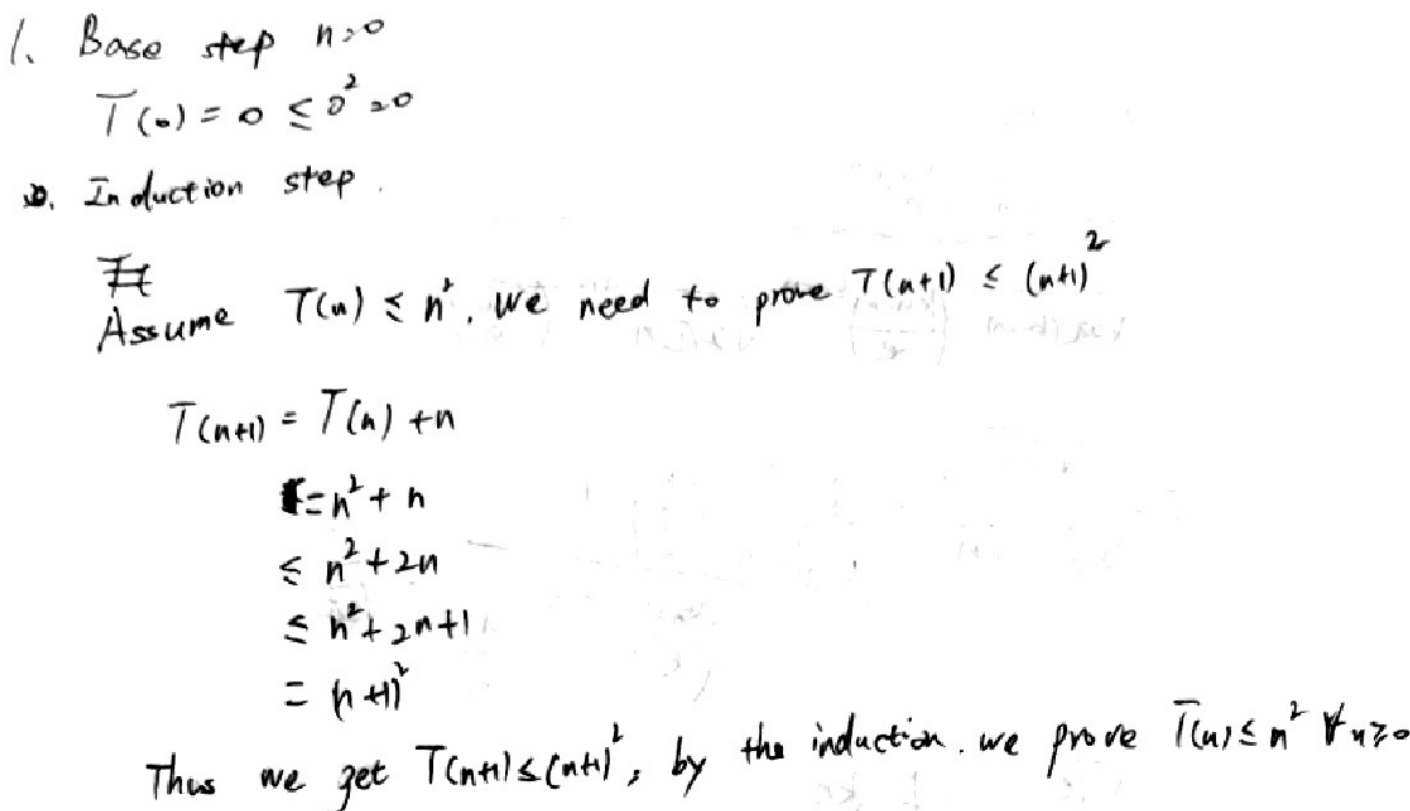 1. Base step n=0
T(0) = 0 ≤ 0² = 0
2. Induction step.
Assume T(n) ≤ n². We need to prove T(n+1) ≤ (n+1)²
T(n+1) = T(n) + n
= n² + n
≤ n² + 2n
≤ n² + 2n + 1
= (n+1)²
Thus we get T(n+1) ≤ (n+1)², by the induction. we prove T(n) ≤ n² ∀n≥0